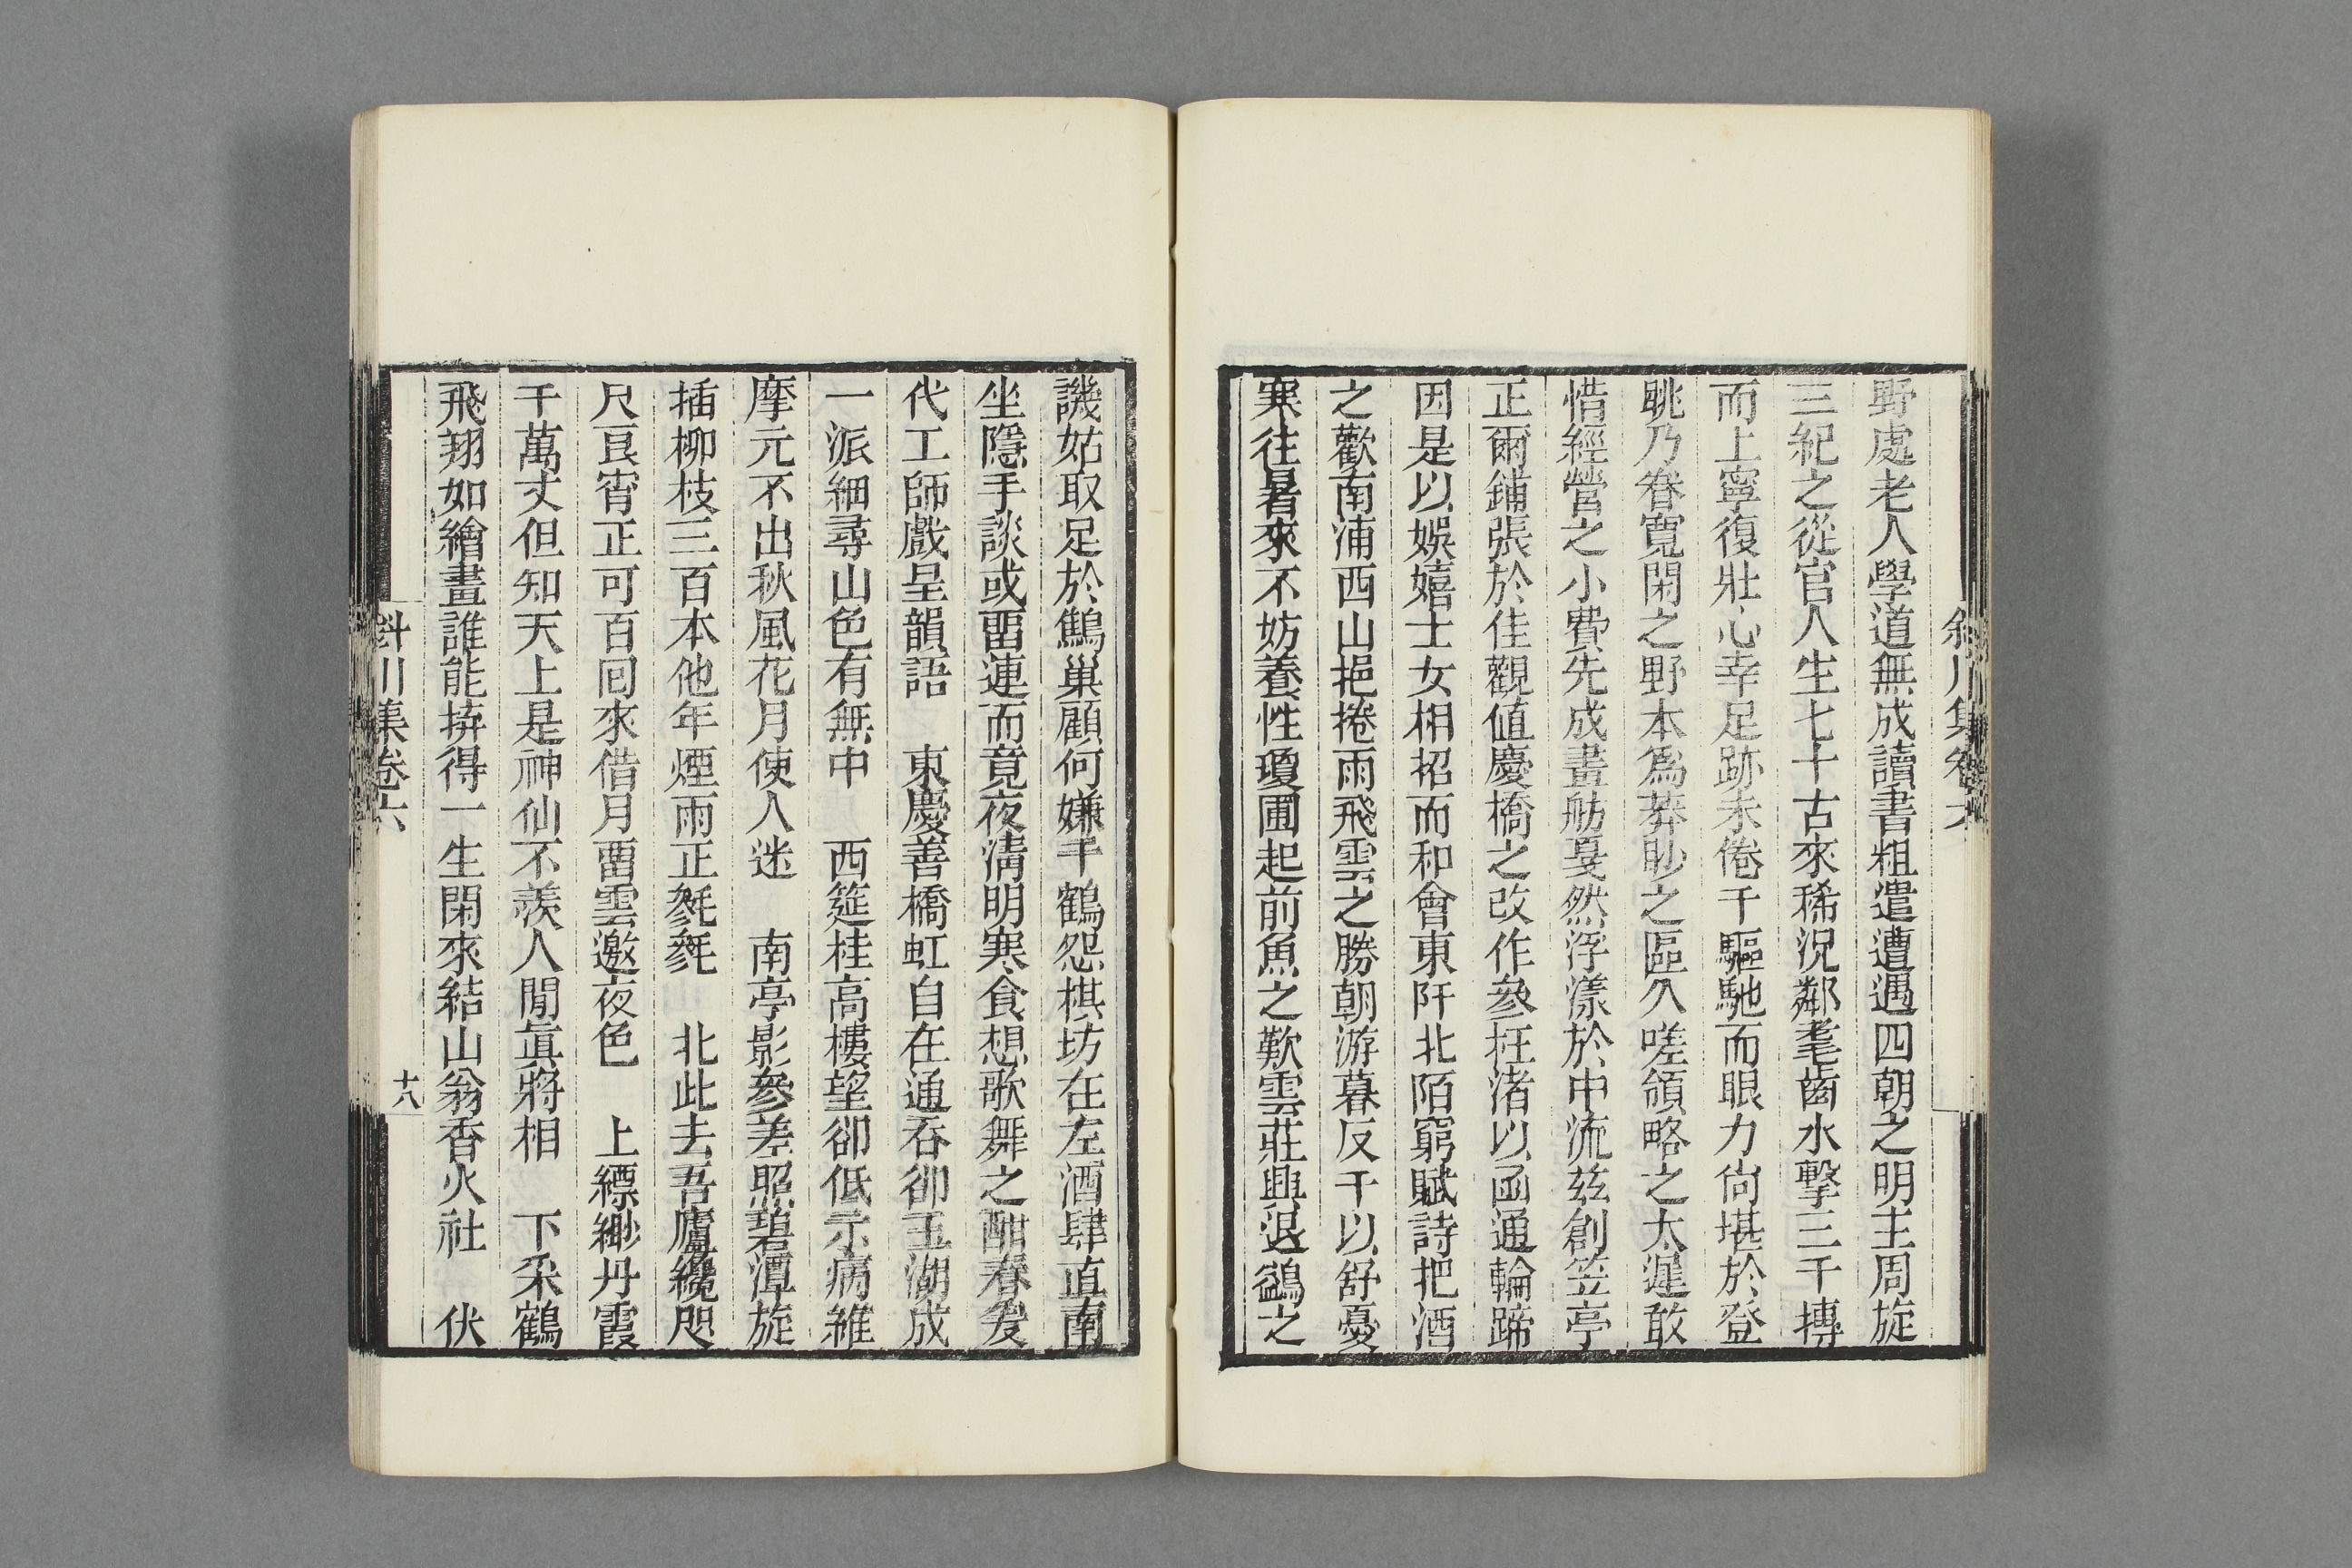 野處老人學道無成讀書粗遣遭遇四朝之明主周旋
三紀之從官人生七十古來稀況鄰耄齒水擊三千摶
而上寧復壯心幸足跡未倦千驅馳而眼力尙堪於登
眺乃眷寬閑之野本爲莽眇之區久嗟領略之太遲敢
惜經營之小費先成畫舫戛然浮漾於中流玆創笠亭
正爾鋪張於佳觀値慶橋之改作參枉渚以函通輪蹄
因是以娛嬉士女相招而和會東阡北陌窮賦詩把酒
之歡南浦西山挹捲雨飛雲之勝朝游暮反千以舒憂
寒往暑來不妨養性瓊圃起前魚之歎雲莊興退鷁之
譏姑取足於鷦巢顧何嫌乎鶴怨棋坊在左酒肆直南
坐隱手談或畱連而竟夜淸明寒食想歌舞之酣春爰
代工師戲呈韻語　東慶善橋虹自在通吞卻玉湖成
一派細尋山色有無中　西筵桂高樓望卻低示病維
摩元不出秋風花月使人迷　南亭影參差照碧潭旋
插柳枝三百本他年煙雨正毿毿　北此去吾廬纔咫
尺良宵正可百回來借月畱雲邀夜色　上縹緲丹霞
千萬丈但知天上是神仙不羨人閒眞將相　下汆鶴
飛翔如繪畫誰能拚得一生閑來結山翁香火社　伏
斜川集卷六
十八